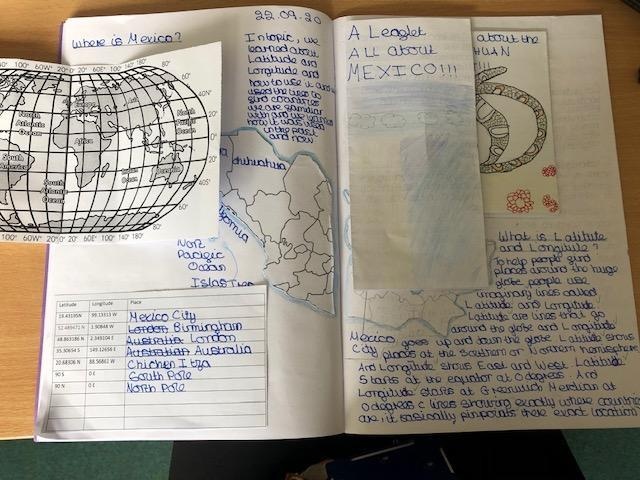 22.09.20
Where is Mexico?
In topic, we
learned about
Latitude and
Longitude and
how to use it and
used the idea to
find countries
we are familiar
with and we learned
how it was used
in the past
and now
80°
60°
40°
20°
0°
20°
40S°
60°
80°
North
Atlantic
Ocean
Europe
Asia
Africa
North
Pacific
Ocean
South
America
South
Atlantic
Ocean
Indian
Ocean
Oceania
100° 60W° 20° 0° 20° 60E° 100° 140° 180°
chihuahua
Pacific
Ocean
Latitude Longitude Place
19.43195N 99.13315 W Mexico City
52.489471 N 1.90844 W London Birmingham
48.863186 N 2.349104 E Australia London
35.30654 S 149.12656 E Australian Australia
20.68306 N 88.56861 W Chichen Itza
90 S 0 E South Pole
90 N 0 E North Pole
A Leaflet
ALL about
MEXICO!!!
about the
!!!
What is Latitude
and Longitude?
To help people find
places around the huge
globe people use
imaginary lines called
Latitude and Longitude.
Latitude are lines that go
around the globe and Longitude
goes up and down the globe. Latitude shows
places at the Southern or Northern hemisphere
And Longitude shows East and West. Latitude
Starts at the equator at 0 degrees. And
Longitude starts at Greenwich Meridian at
0 degrees
lines showing exactly where countries
are, it basically, pinpoints there exact location
Mexico
City